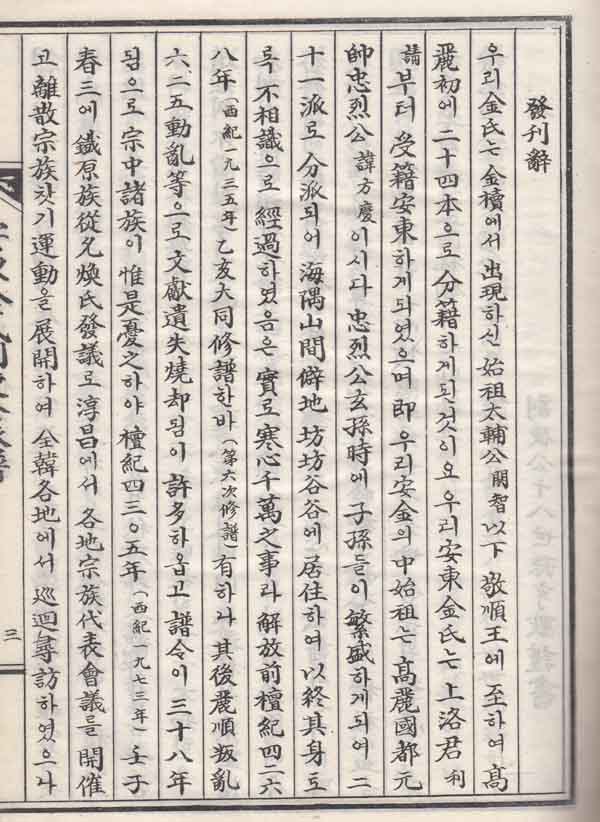 發刊辭
우리 金氏는 金櫝에서 出現하신 始祖太輔公 閼智 以下 敬順王에 至하여 高
麗初에 二十四本으로 分籍하게된것이요 우리 安東金氏는 上洛君 利
請 부터 受籍安東하게되였으며 即 우리 安金의 中始祖는 高麗國都元
帥忠烈公 諱方慶 이시다 忠烈公玄孫時에 子孫들이 繁盛하게되여 二
十一派로 分派되어 海隅山間僻地 坊坊谷谷에 居住하여 以終其身토
록 不相識으로 經過하였음은 實로 寒心千萬之事라 解放前檀紀四二六
八年 (西紀一九三五年) 乙亥大同修譜한바 (第六次修譜) 有하나 其後麗順叛亂
六.二五動亂等으로 文獻遺失燒却됨이 許多하옵고 譜令이 三十八年
됨으로 宗中諸族이 惟是憂之하야 檀紀四三○五年 (西紀一九七三年) 壬子
春三에 鐵原族從允煥氏發議로 淳昌에서 各地宗族代表會議를 開催
고 離散宗族찾기運動을 展開하여 全韓各地에서 巡迴尋訪하였으나
三